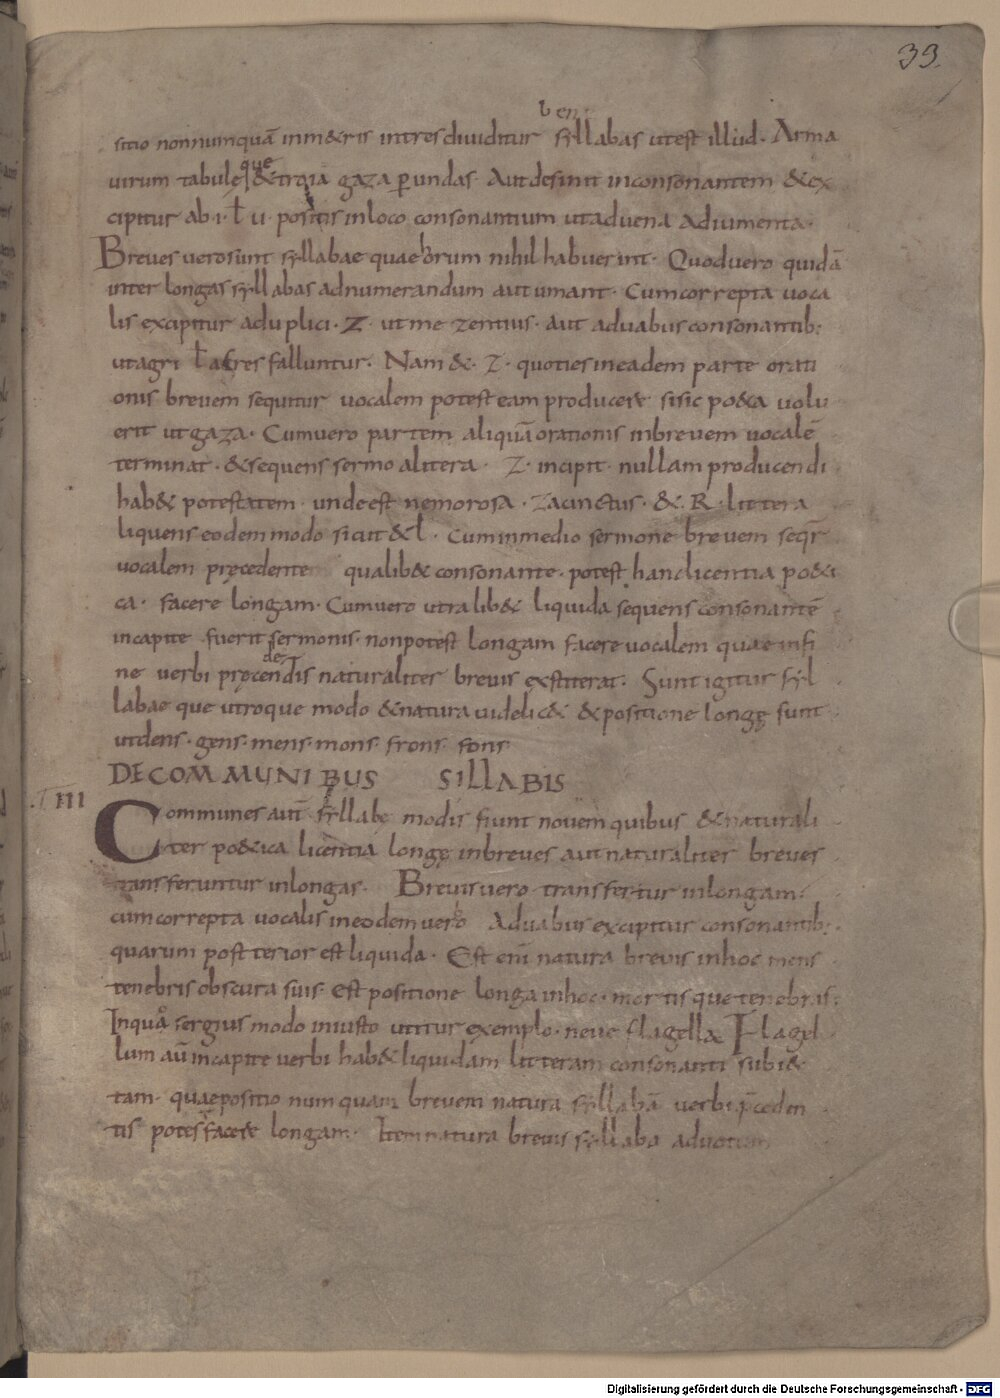 39
ben
sitio nonnumquā inm&ris intres diuiditur syllabas utest illud. Arma
uirum tabulę que &troia gaza p̱ undas. Aut desinit inconsonantem &ex
cipitur ab.i. ł u. positis inloco consonantium utaduena adiumenta.
Breues uerosunt syllabae quae horum nihil habuerint. Quoduero quidā
inter longas syllabas adnumerandum autumant. Cum correpta uoca
lis excipitur aduplici. Z. ut mezentius. aut aduabus consonantib;
utagri ł afres falluntur. Nam &. Z. quoties ineadem parte orati
onis breuem sequitur uocalem potest eam producere sisic po&a uolu
erit ut gaza. Cumuero partem aliquā orationis inbreuem uocalē
terminat. & sequens sermo alitera. Z. incipit. nullam producendi
hab& potestatem. unde est nemorosa. zacinctus. &. R. littera
liquens eodem modo sicut & l. Cum inmedio sermone breuem seqr̄
uocalem pręcedente qualib& consonante. potest hanc licentia po&i
ca. facere longam. Cumuero utralib& liquida sequens consonantē
incapite fuerit sermonis. nonpotest longam facere uocalem quae infi
de
ne uerbi pręcentis naturaliter breuis exstiterat. Sunt igitur syl
labae que utroque modo &natura uidelic& &positione longę sunt
utdens. gens. mens. mons. frons. fons
DECOMMUNIBUS SILLABIS
III
Communes aut̄ syllabę modis fiunt nouem quibus &naturali
ter po&ica licentia longę inbreues aut naturaliter breues
transferuntur inlongas. Breuis uero transfertur inlongam.
cum correpta uocalis ineodem uerbo Aduabus excipitur consonantib;.
quarum postterior est liquida. Est eni natura breuis inhoc mens
tenebris obscura suis. Est positione longa inhoc. mortis que tenebras.
Inquā sergius modo iniusto utitur exemplo. neue flagella Flagel
lum aū incapite uerbi hab& liquidam litteram consonanti subi&
tam. quaepositio numquam breuem natura syllabā uerbi p̄ceden
tis potest facere longam. Item natura breuis syllaba aduotum
Digitalisierung gefördert durch die Deutsche Forschungsgemeinschaft - DFG